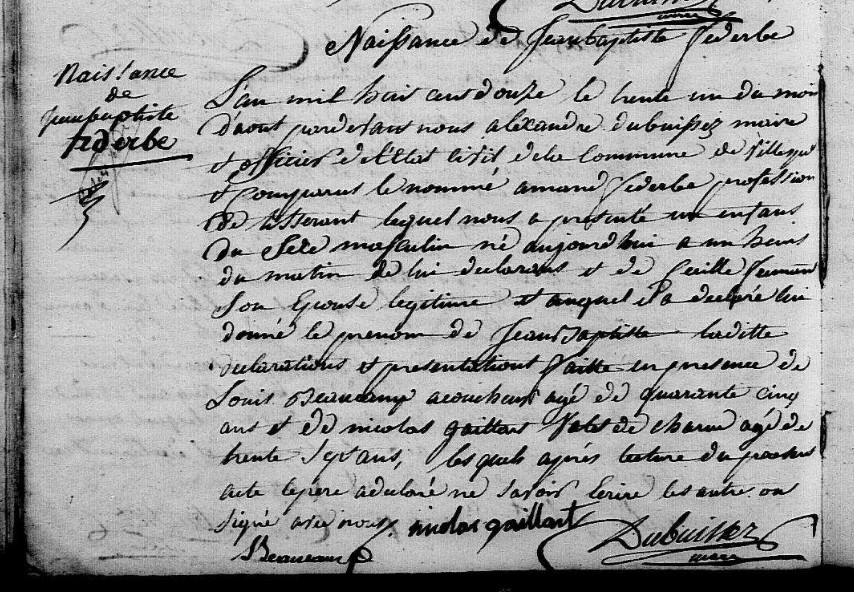 Dubuissez
maire
Naissance de Jean baptiste federbe
Naissance
de
jeanbaptiste
federbe
L'an mil huit cent douze le trente un du mois
d'aout pardevans nous alexandre dubuissez maire
et officier de l'Etat Civil de la Commune de
est Comparut le nommé amand federbe profession
de tisserant lequel nous a presenté un enfans
du Sexe masculin né aujourdhui a un heure
du matin de lui declarans et de
Son Epouse legitime et auquel il a declaré lui
donné le prenom de Jean Baptiste laditte
declarations et presentations faitte en presance de
Louis Beaucamp acoucheur agé de quarante cinq
ans et de nicolas gaillart Valet de charue agé de
trente Sept ans, lesquels après lecture du present
acte le père a declaré ne Savoir Ecrire les autre on
signé avec nous. nicolas gaillart
Beaucamp Dubuissez
maire